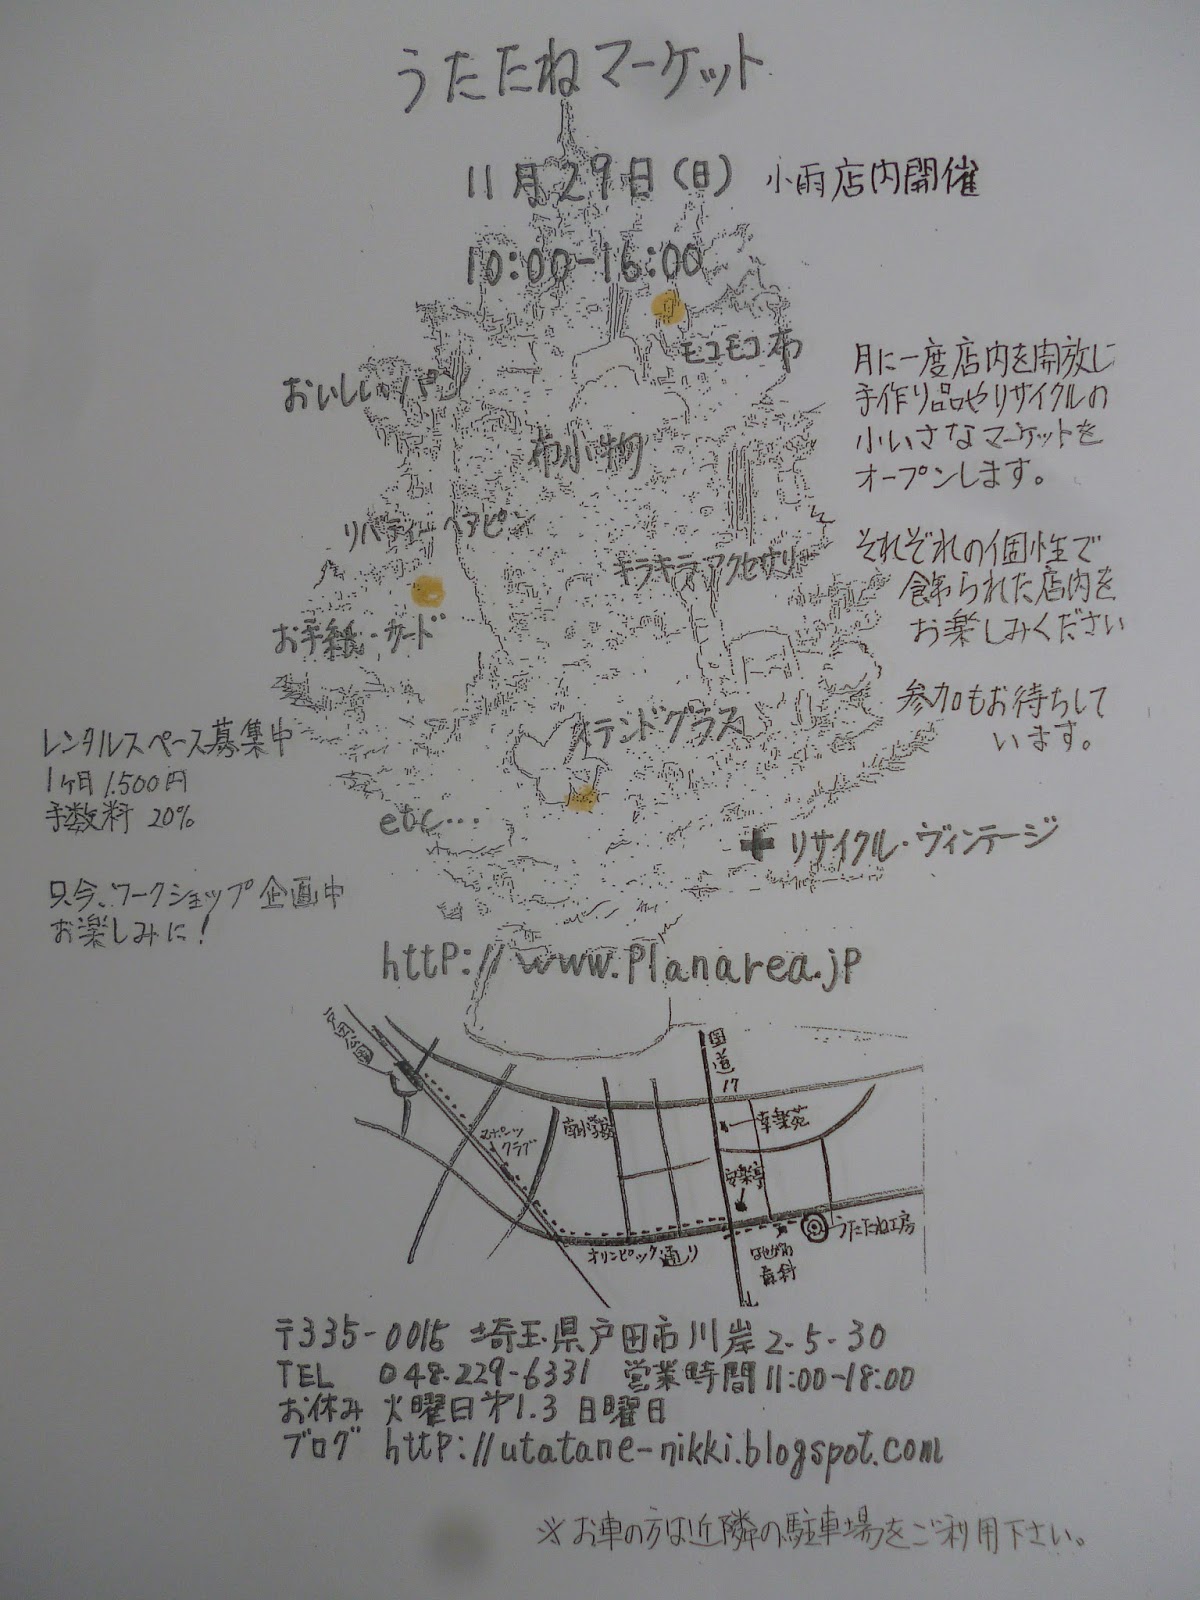 うたたねマーケット
11月29日(日) 小雨店内開催
10:00-16:00
モコモコ布
おいしいパン
布小物
リバティーヘアピン
キラキラアクセサリー
お手紙・カード
ステンドグラス
etc…
+リサイクル・ヴィンテージ
月に一度店内を開放し
手作り品やリサイクルの
小いさなマーケットを
オープンします。
それぞれの個性で
飾られた店内を
お楽しみください
参加もお待ちして
います。
レンタルスペース募集中
1ヶ月1.500円
手数料 20%
只今、ワークショップ企画中
お楽しみに!
http://www.planarea.jp
戸田公園
国道17
スポーツ
クラブ
幸楽苑
安楽亭
オリンピック通り
うたたね工房
歯科
〒335-0015 埼玉県戸田市川岸2-5-30
TEL 048-229-6331 営業時間11:00-18:00
お休み 火曜日第1.3 日曜日
ブログ http://utatane-nikki.blogspot.com
※お車の方は近隣の駐車場をご利用下さい。